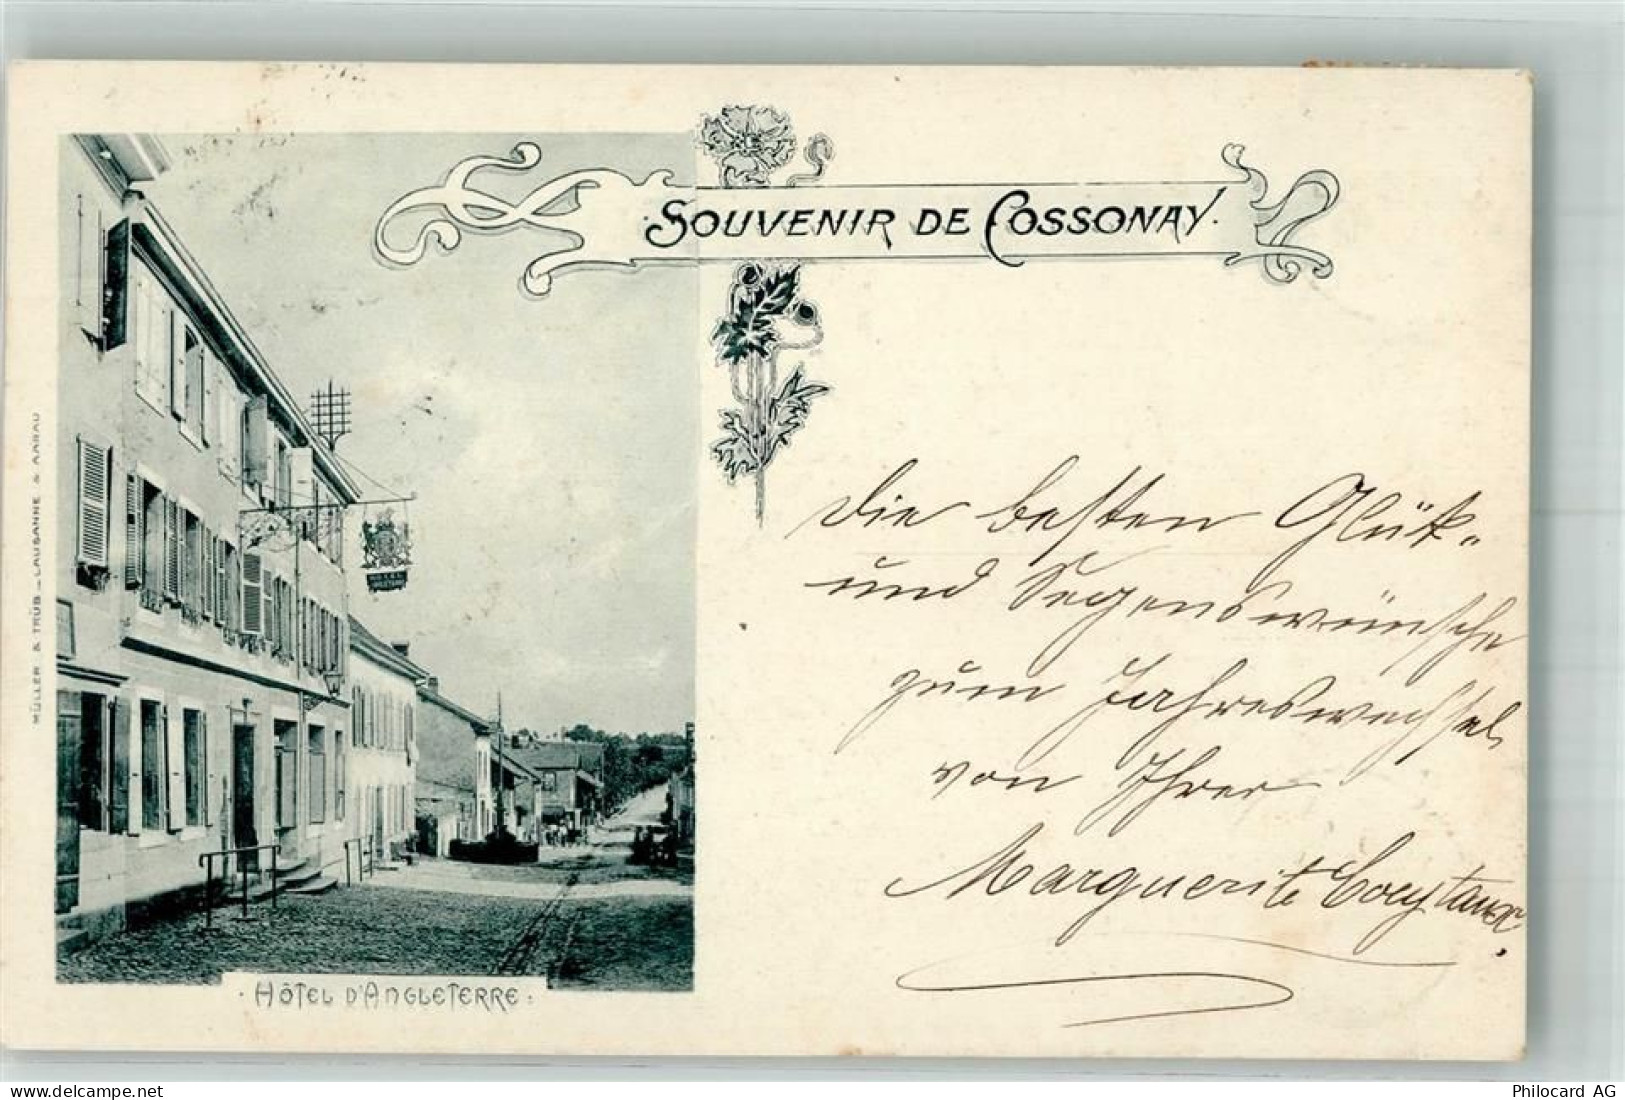 SOUVENIR DE COSSONAY.
die besten Glück-
und Segenswünsche
zum Jahreswechsel
von Ihrer
Marguerite
MÜLLER & TRÜB _ LAUSANNE & AARAU
· HÔTEL D'ANGLETERRE ·
www.delcampe.net
Philocard AG